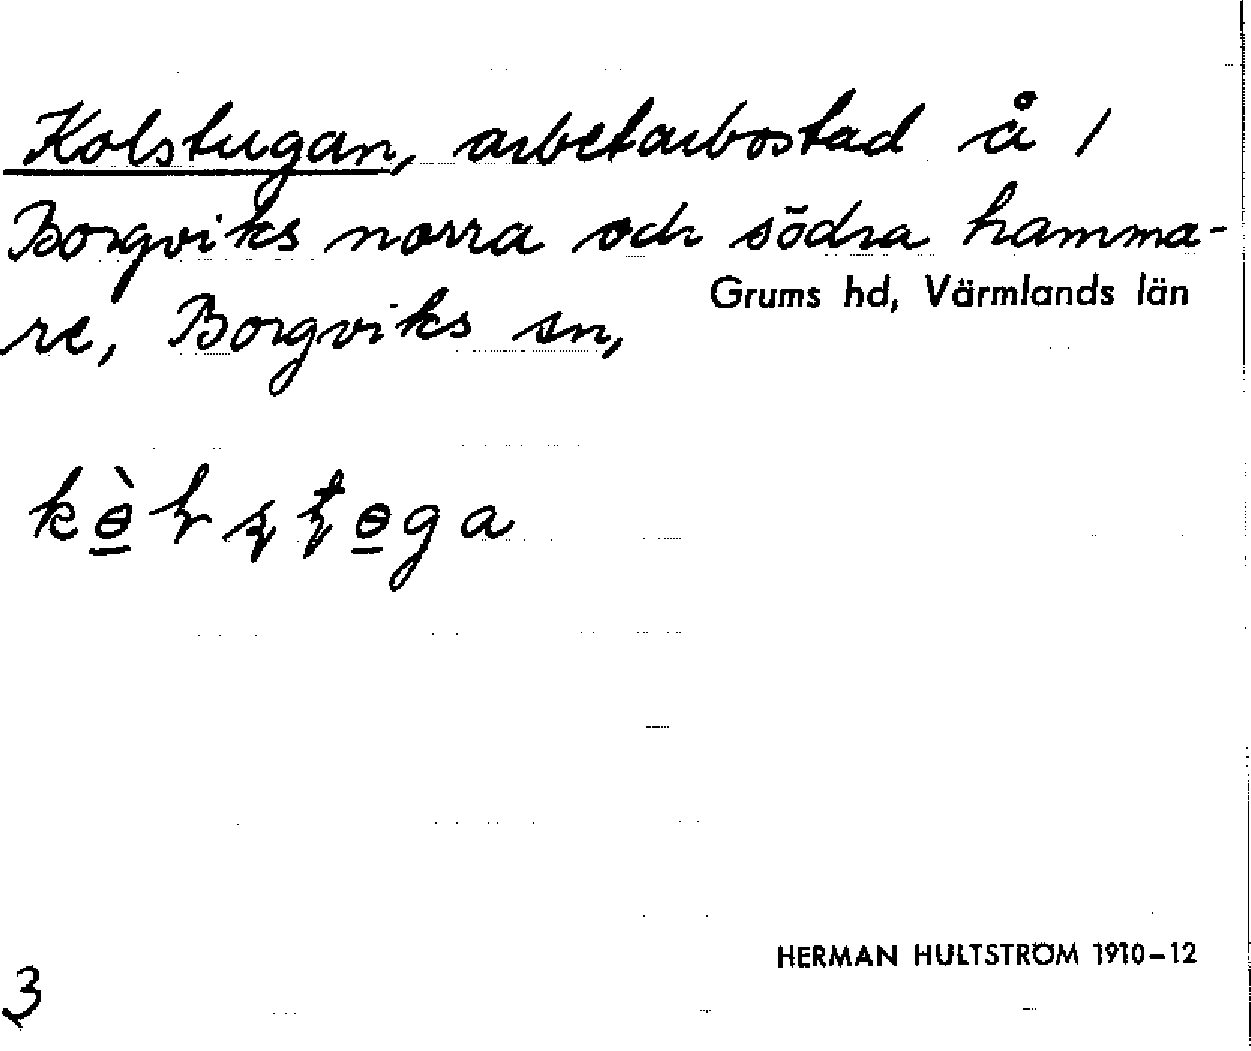 Kolstugan, arbetarbostad å 1
Borgviks norra och södra hamma-
re, Borgviks sn,
Grums hd, Värmlands län
HERMAN HULTSTRÖM 1910-12
3